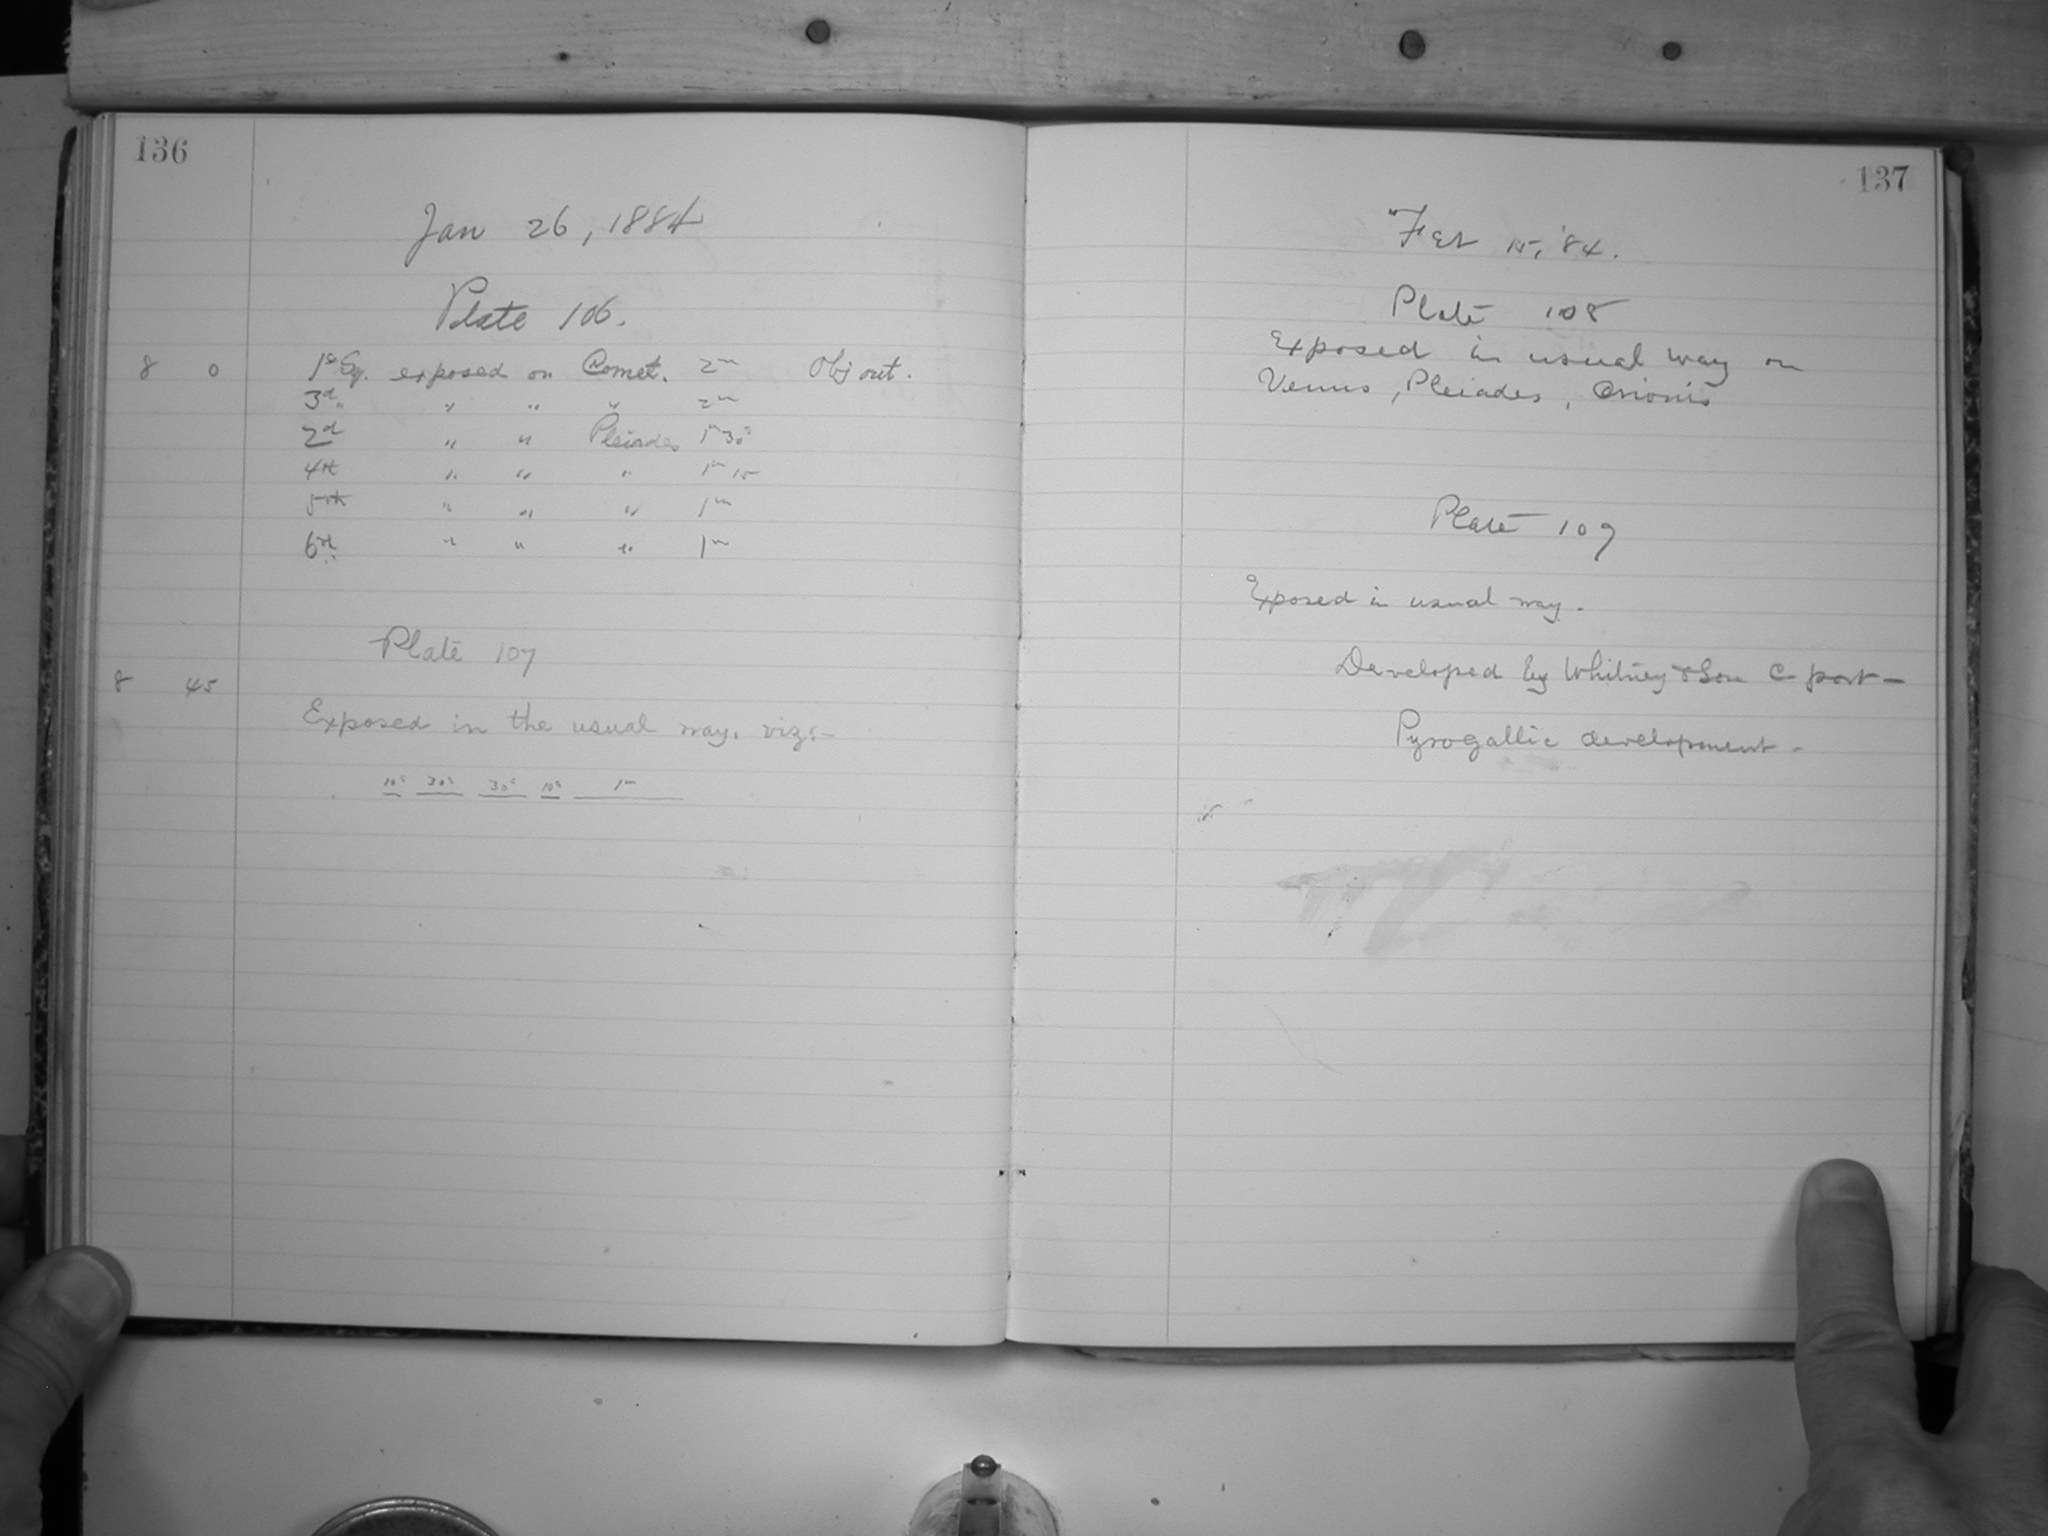 136
Jan 26, 1884
Plate 106.
8 0 1st Sq. exposed on Comet. 2m Obj out.
3d " " " " 2m
2d " " Pleiades 1m 30s
4th " " " 1m 15
5th " " " 1m
6th " " " 1m
Plate 107
8 45
Exposed in the usual way. viz:—
10s 30s 30s 10s 1m
137
Feb 15, '84.
Plate 108
Exposed in usual way on
Venus, Pleiades, Orionis
Plate 109
Exposed in usual way.
Developed by Whitney & Son C-port—
Pyrogallic development.